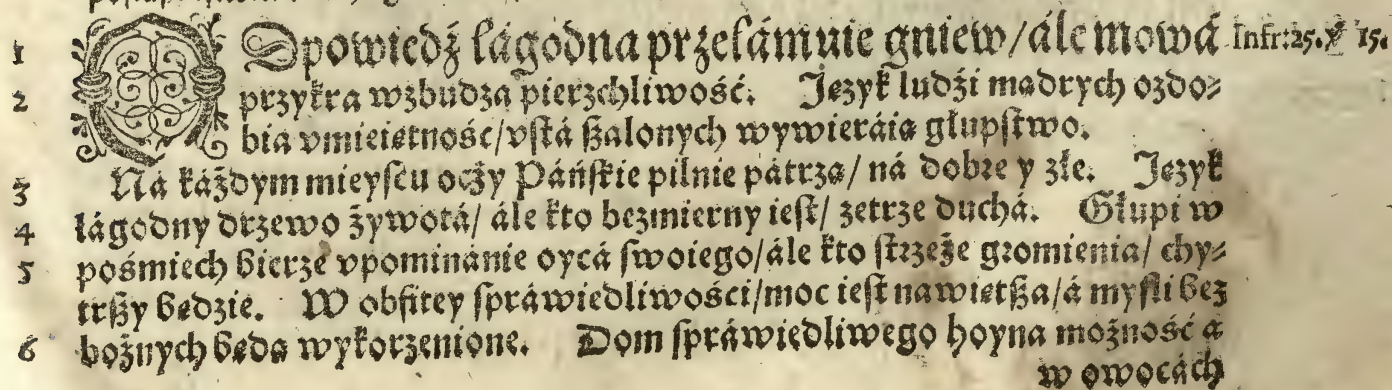 1 Odpowiedź łágodna przełámuie gniew/ ále mowá Infr: 25. ℣ 15.
2 przykra wzbudza pierzchliwość. Język ludźi mądrych ozdo⸗
bia vmieiętność/ vstá szalonych wywieráią głupstwo.
3 Ná káżdym mieyscu oczy Páńskie pilnie pátrzą/ ná dobre y złe. Język
4 łágodny drzewo żywotá/ ále kto bezmierny iest/ zetrze duchá. Głupi w
5 pośmiech bierze vpominánie oycá swoiego/ ále kto strzeże gromienia/ chy⸗
trszy będzie. W obfitey spráwiedliwości/ moc iest nawiętsza/ á myśli bez
6 bożnych będą wykorzenione. Dom spráwiedliwego hoyna możność á
w owocách